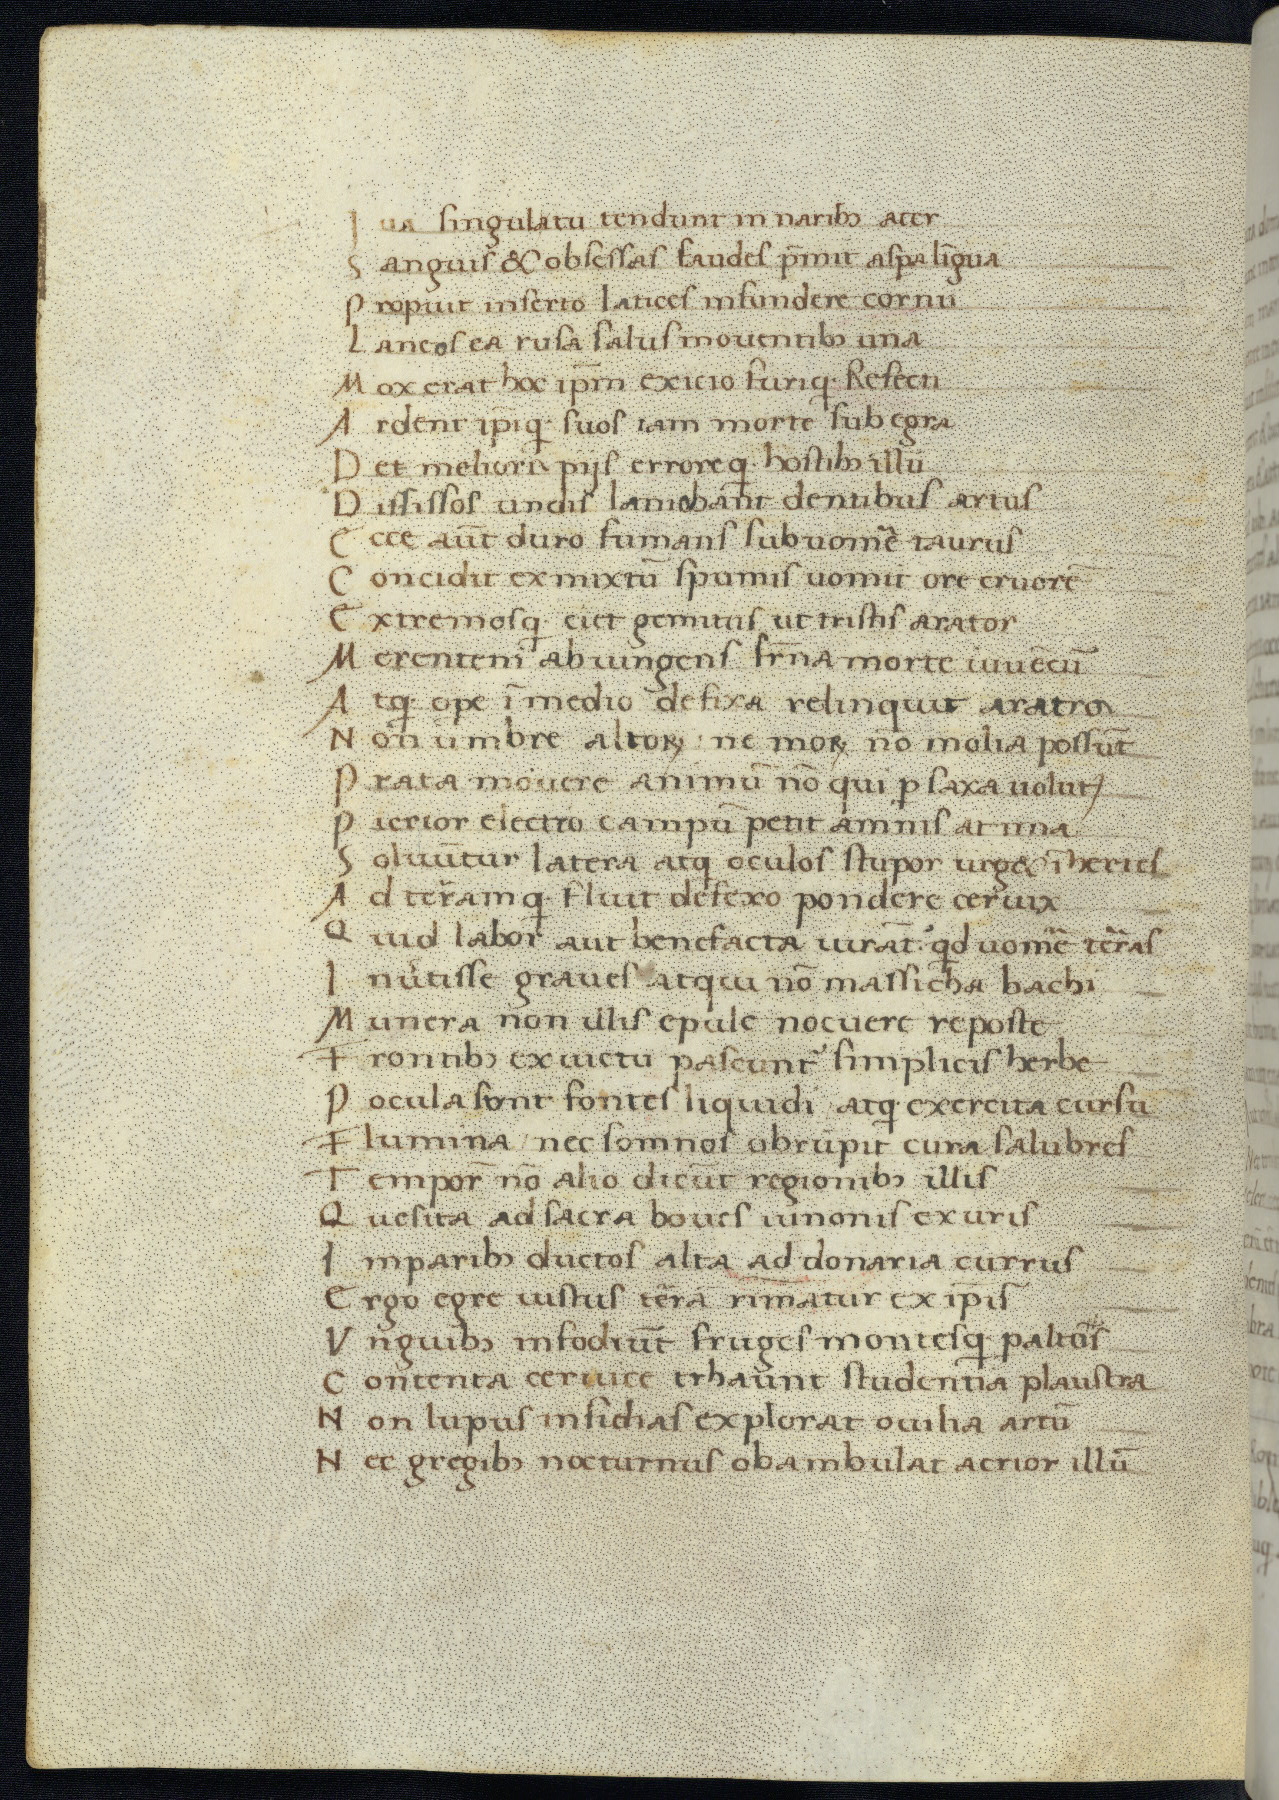 I ua singulatu tendunt in narib; ater
S anguis & obsessas faudes p̄mit aspa līgua
P ropuit inserto latices infundere cornu
L aneos ea rusa salus moventib; una
M ox erat hoc ip̄m exicio furiq; Refecti
A rdent ip̄iq; suos iam morte sub egra
D et meliora pijs erroreq; hostib; illū
D ississos undis laniabant dentibus artus
E cce aūt duro fumans sub vomē taurus
C oncidit ex mixtū spumis vomit ore cruorē
E xtremosq; ciet gemitus ut tristis arator
M erentem abiungens frāna morte iuvēcū
A tq; ope ī medio defixa relinquit aratra
N on umbre altoꝝ ne moꝝ nō molia possūt
P rata movere animū nō qui ꝑ saxa volut᷒
P icrior electro campū petit amnis at una
S olvūtur latera atq; oculos stupor urg& īheries
A d terramq; fluit defexo pondere cervix
Q uid labor aut benefacta iuvāt qd vomē terras
I nvtisse graves atqui nō massicha bachi
M unera non illis epule nocuere reposte
F rontib; ex victu pascunt simplicis herbe
P ocula sont fontes liquidi atq; exercita cursu
F lumina nec somnos obrūpit cura salubres
T empor̄ nō alio dicūt regionib; illis
Q uesita ad sacra boves iunonis ex uris
I mparib; ductos alta ad donaria currus
E rgo egre iustus terā rimatur ex ip̄is
V nguib; infodiūt fruges montesq; paltos
C ontenta cervice trhaunt studentia plaustra
N on lupus insidias explorat ovilia artū
N ec gregib; nocturnus obambulat acrior illū